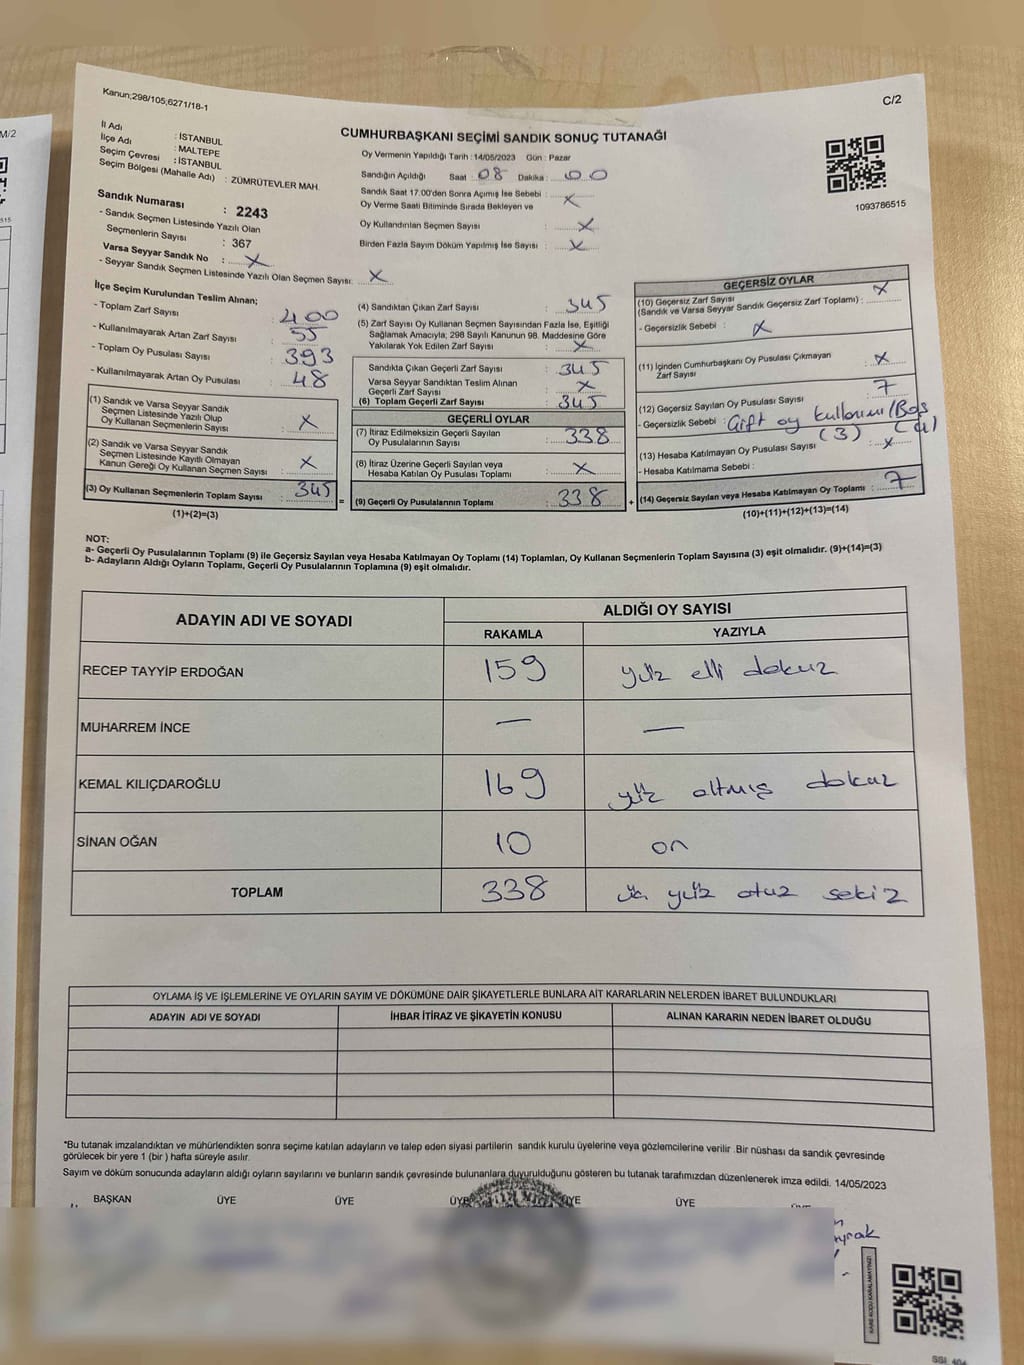 M/2
515
Kanun;298/105;6271/18-1
C/2
CUMHURBAŞKANI SEÇİMİ SANDIK SONUÇ TUTANAĞI
İl Adı : İSTANBUL
İlçe Adı : MALTEPE
Seçim Çevresi : İSTANBUL
Seçim Bölgesi (Mahalle Adı) : ZÜMRÜTEVLER MAH.
Sandık Numarası : 2243
- Sandık Seçmen Listesinde Yazılı Olan
Seçmenlerin Sayısı : 367
Varsa Seyyar Sandık No : X
- Seyyar Sandık Seçmen Listesinde Yazılı Olan Seçmen Sayısı: X
Oy Vermenin Yapıldığı Tarih : 14/05/2023 Gün : Pazar
Sandığın Açıldığı Saat : 08 Dakika : 00
Sandık Saat 17:00'den Sonra Açımış İse Sebebi :
Oy Verme Saati Bitiminde Sırada Bekleyen ve X
Oy Kullandırılan Seçmen Sayısı : X
Birden Fazla Sayım Döküm Yapılmış İse Sayısı : X
1093786515
İlçe Seçim Kurulundan Teslim Alınan;
- Toplam Zarf Sayısı : 400
- Kullanılmayarak Artan Zarf Sayısı : 55
- Toplam Oy Pusulası Sayısı : 393
- Kullanılmayarak Artan Oy Pusulası : 48
(1) Sandık ve Varsa Seyyar Sandık
Seçmen Listesinde Yazılı Olup
Oy Kullanan Seçmenlerin Sayısı : X
(2) Sandık ve Varsa Seyyar Sandık
Seçmen Listesinde Kayıtlı Olmayan
Kanun Gereği Oy Kullanan Seçmen Sayısı : X
(3) Oy Kullanan Seçmenlerin Toplam Sayısı : 345 =
(1)+(2)=(3)
(4) Sandıktan Çıkan Zarf Sayısı : 345
(5) Zarf Sayısı Oy Kullanan Seçmen Sayısından Fazla İse, Eşitliği
Sağlamak Amacıyla; 298 Sayılı Kanunun 98. Maddesine Göre
Yakılarak Yok Edilen Zarf Sayısı : X
Sandıkta Çıkan Geçerli Zarf Sayısı : 345
Varsa Seyyar Sandıktan Teslim Alınan
Geçerli Zarf Sayısı : X
(6) Toplam Geçerli Zarf Sayısı : 345
GEÇERLİ OYLAR
(7) İtiraz Edilmeksizin Geçerli Sayılan
Oy Pusulalarının Sayısı : 338
(8) İtiraz Üzerine Geçerli Sayılan veya
Hesaba Katılan Oy Pusulası Toplamı : X
(9) Geçerli Oy Pusulalarının Toplamı : 338 +
GEÇERSİZ OYLAR
(10) Geçersiz Zarf Sayısı
(Sandık ve Varsa Seyyar Sandık Geçersiz Zarf Toplamı) : X
- Geçersizlik Sebebi : X
(11) İçinden Cumhurbaşkanı Oy Pusulası Çıkmayan
Zarf Sayısı : X
(12) Geçersiz Sayılan Oy Pusulası Sayısı : 7
- Geçersizlik Sebebi : Çift oy kullanımı/Boş
(3) (4)
(13) Hesaba Katılmayan Oy Pusulası Sayısı : X
- Hesaba Katılmama Sebebi :
(14) Geçersiz Sayılan veya Hesaba Katılmayan Oy Toplamı : 7
(10)+(11)+(12)+(13)=(14)
NOT:
a- Geçerli Oy Pusulalarının Toplamı (9) ile Geçersiz Sayılan veya Hesaba Katılmayan Oy Toplamı (14) Toplamları, Oy Kullanan Seçmenlerin Toplam Sayısına (3) eşit olmalıdır. (9)+(14)=(3)
b- Adayların Aldığı Oyların Toplamı, Geçerli Oy Pusulalarının Toplamına (9) eşit olmalıdır.
ADAYIN ADI VE SOYADI
ALDIĞI OY SAYISI
RAKAMLA YAZIYLA
RECEP TAYYİP ERDOĞAN 159 yüz elli dokuz
MUHARREM İNCE — —
KEMAL KILIÇDAROĞLU 169 yüz altmış dokuz
SİNAN OĞAN 10 on
TOPLAM 338 üç yüz otuz sekiz
OYLAMA İŞ VE İŞLEMLERİNE VE OYLARIN SAYIM VE DÖKÜMÜNE DAİR ŞİKAYETLERLE BUNLARA AİT KARARLARIN NELERDEN İBARET BULUNDUKLARI
ADAYIN ADI VE SOYADI İHBAR İTİRAZ VE ŞİKAYETİN KONUSU ALINAN KARARIN NEDEN İBARET OLDUĞU
*Bu tutanak imzalandıktan ve mühürlendikten sonra seçime katılan adayların ve talep eden siyasi partilerin sandık kurulu üyelerine veya gözlemcilerine verilir .Bir nüshası da sandık çevresinde
görülecek bir yere 1 (bir ) hafta süreyle asılır.
Sayım ve döküm sonucunda adayların aldığı oyların sayılarını ve bunların sandık çevresinde bulunanlara duyurulduğunu gösteren bu tutanak tarafımızdan düzenlenerek imza edildi. 14/05/2023
BAŞKAN ÜYE ÜYE ÜYE ÜYE ÜYE
KARE KODU KARALAMAYINIZ!